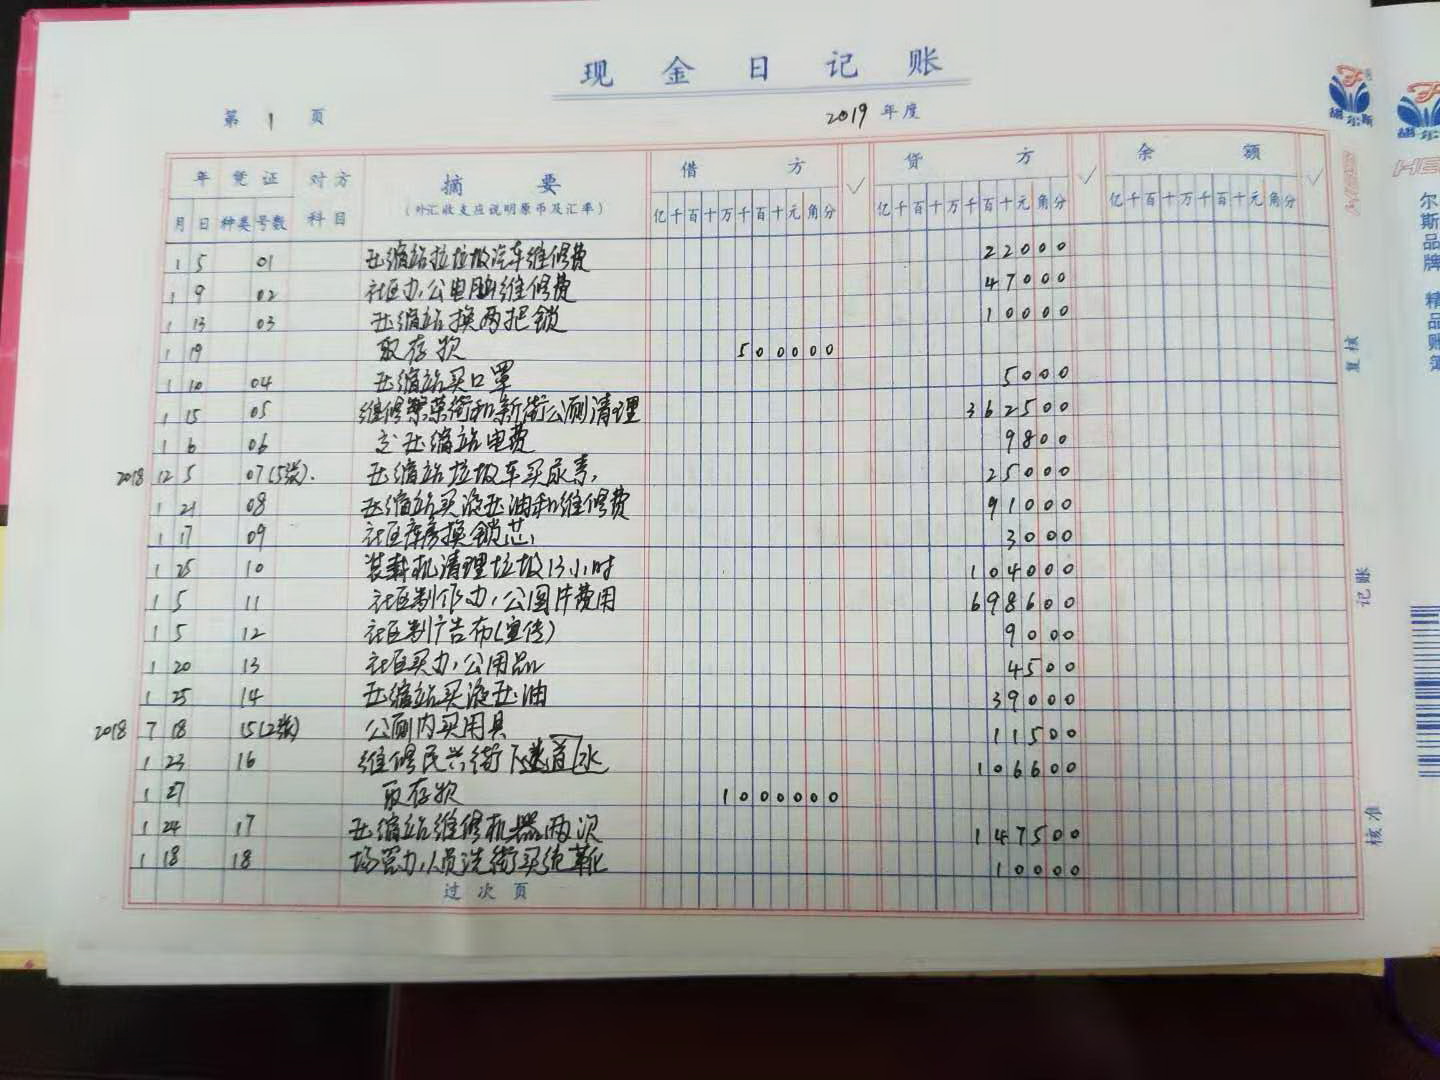 现金日记账
第 1 页 2019 年度
年 凭证 对方 摘要 借方 ✓ 贷方 ✓ 余额 ✓
月 日 种类 号数 科目 (外汇收支应说明原币及汇率) 亿千百十万千百十元角分 亿千百十万千百十元角分 亿千百十万千百十元角分
1 5 01 压缩站拉垃圾汽车维修费 22000
1 9 02 社区办公电脑维修费 47000
1 13 03 压缩站换两把锁 10000
1 19 取存款 500000
1 10 04 压缩站买口罩 5000
1 15 05 维修繁荣街和新街公厕清理 362500
1 6 06 交压缩站电费 9800
2018 12 5 07(5张). 压缩站垃圾车买尿素, 25000
1 21 08 压缩站买液压油和维修费 91000
1 17 09 社区库房换锁芯, 3000
1 25 10 装载机清理垃圾13小时 104000
1 5 11 社区制作办公图片费用 698600
1 5 12 社区制广告布(宣传) 9000
1 20 13 社区买办公用品 4500
1 25 14 压缩站买液压油 39000
2018 7 18 15(2张) 公厕内买用具 11500
1 23 16 维修民兴街下水 106600
1 27 取存款 1000000
1 24 17 压缩站维修机器两次 147500
1 18 18 场管办人员洗街买绝靴 10000
过次页
复核
记账
核准
胡尔斯
HERS
尔斯品牌 精品账簿